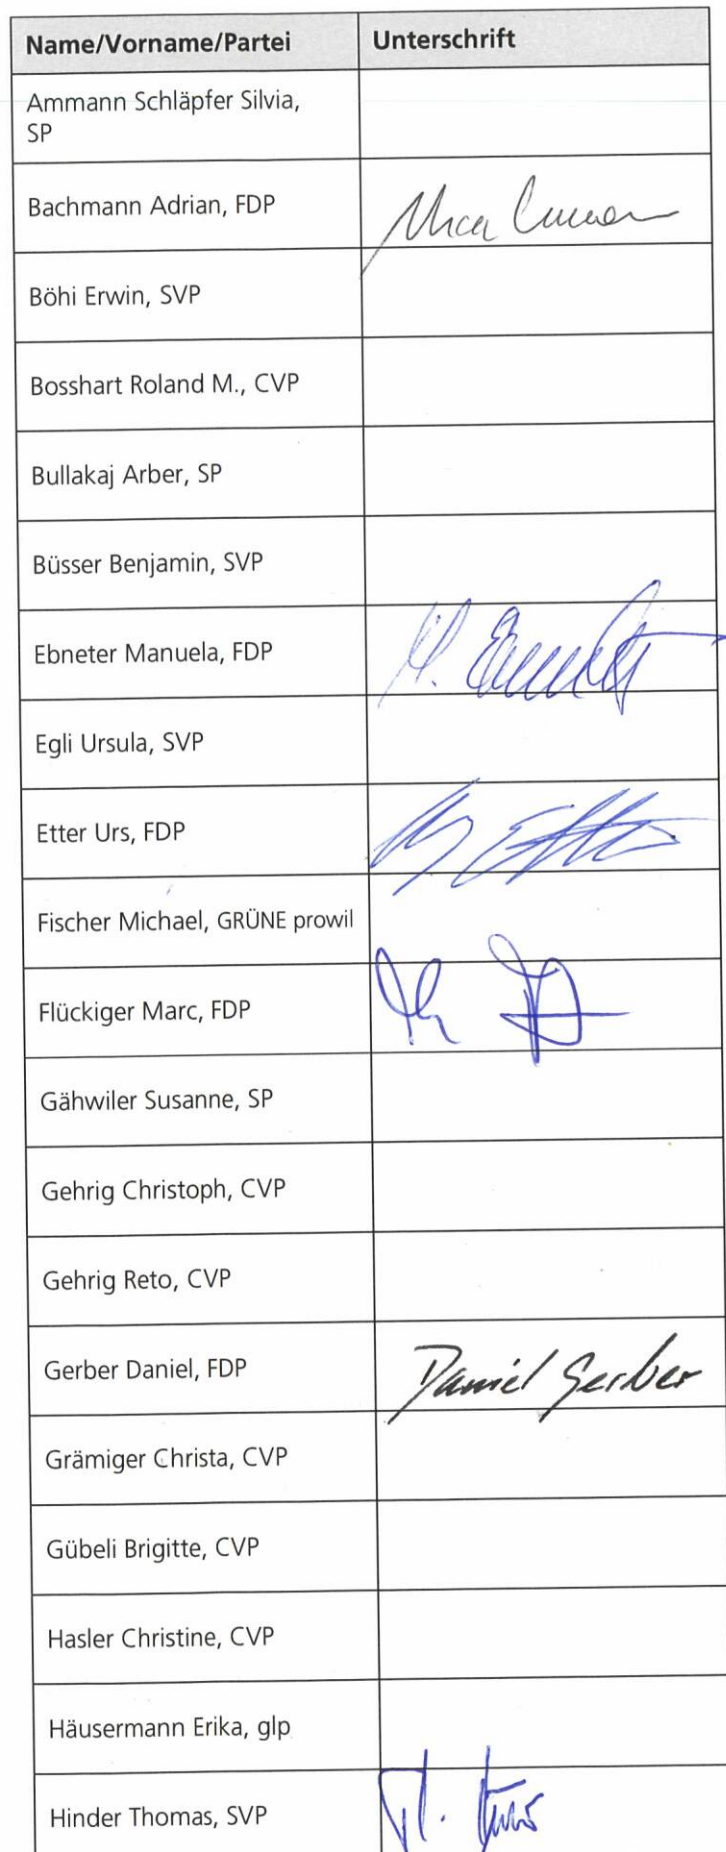 Name/Vorname/Partei Unterschrift
Ammann Schläpfer Silvia,
SP
Bachmann Adrian, FDP
Böhi Erwin, SVP
Bosshart Roland M., CVP
Bullakaj Arber, SP
Büsser Benjamin, SVP
Ebneter Manuela, FDP
Egli Ursula, SVP
Etter Urs, FDP
Fischer Michael, GRÜNE prowil
Flückiger Marc, FDP
Gähwiler Susanne, SP
Gehrig Christoph, CVP
Gehrig Reto, CVP
Gerber Daniel, FDP Daniel Gerber
Grämiger Christa, CVP
Gübeli Brigitte, CVP
Hasler Christine, CVP
Häusermann Erika, glp
Hinder Thomas, SVP